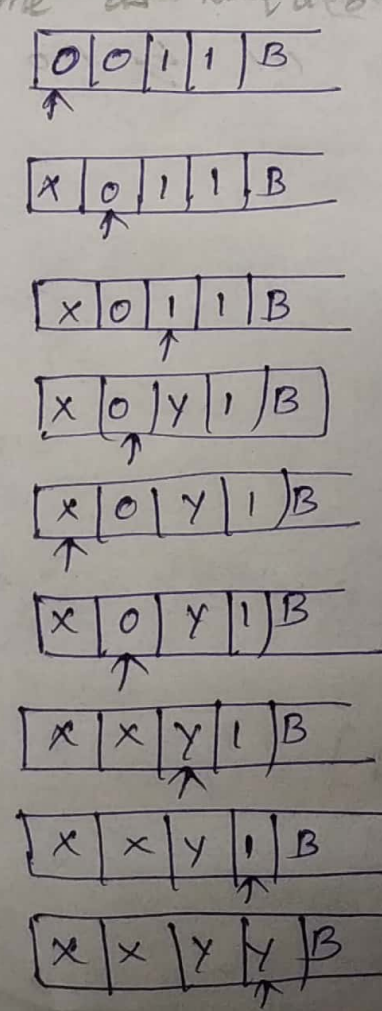 0 0 1 1 B
X 0 1 1 B
X 0 1 1 B
X 0 Y 1 B
X 0 Y 1 B
X 0 Y 1 B
X X Y 1 B
X X Y 1 B
X X Y Y B